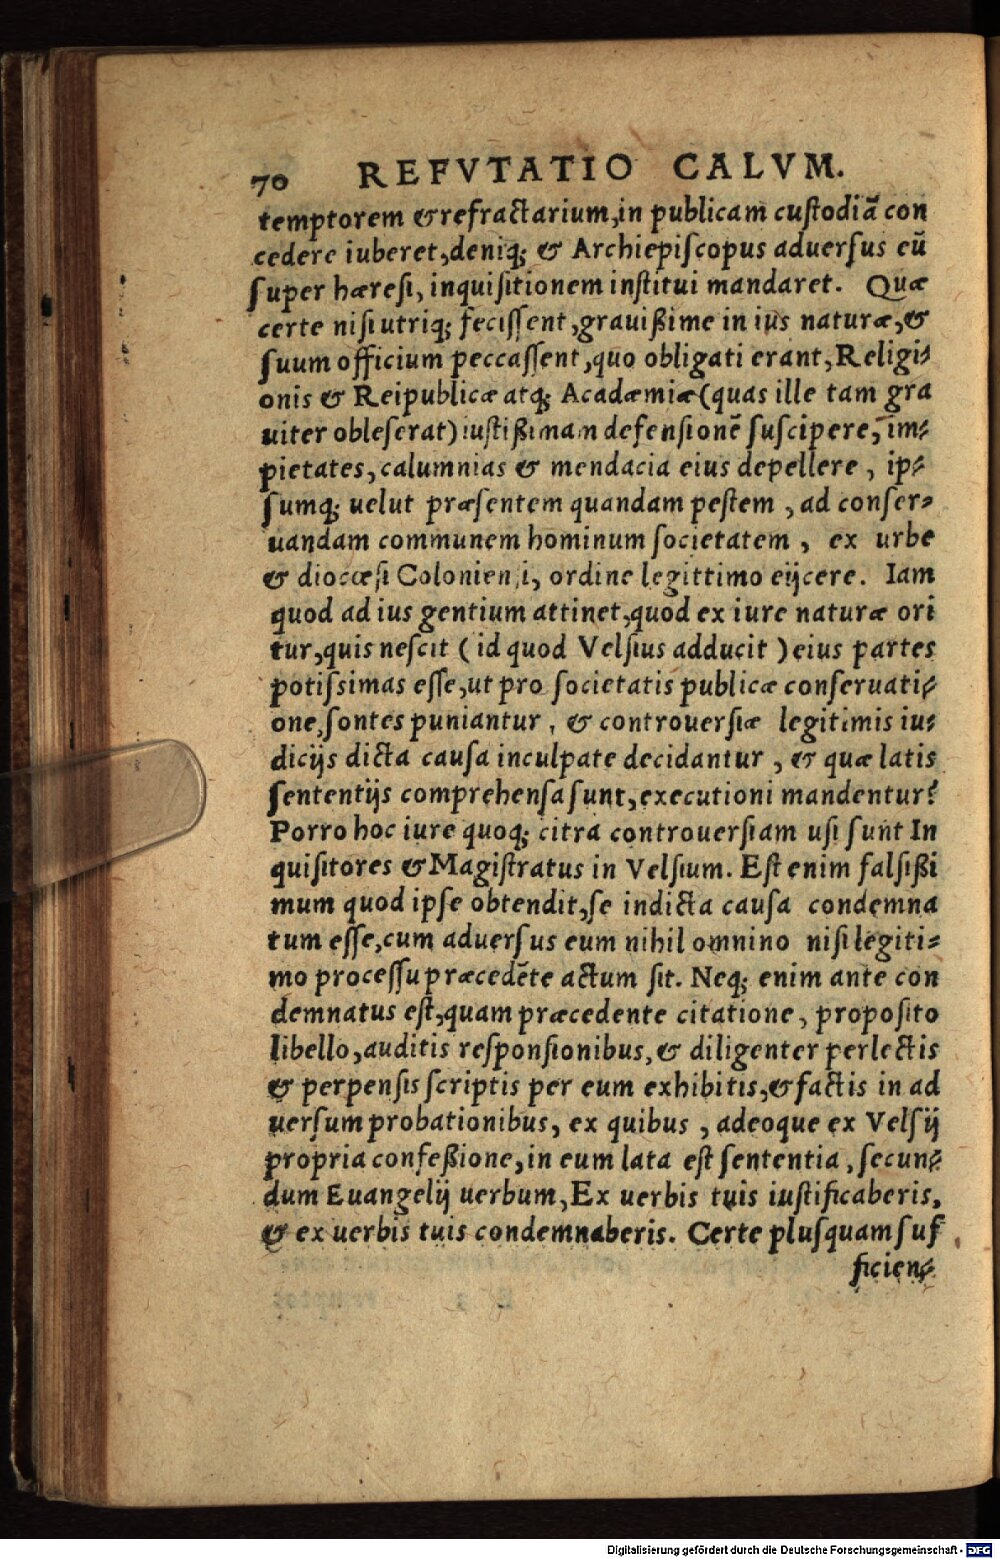 70 REFVTATIO CALVM.
temptorem & refractarium, in publicam custodiā con
cedere iuberet, deniq; & Archiepiscopus aduersus eū
super hæresi, inquisitionem institui mandaret. Quæ
certe nisi utriq; fecissent, grauißime in ius naturæ, &
suum officium peccassent, quo obligati erant, Religi⸗
onis & Reipublicæ atq; Acadæmiæ (quas ille tam gra
uiter obleserat) iustißimam defensionē suscipere, im⸗
pietates, calumnias & mendacia eius depellere, ip⸗
sumq; uelut præsentem quandam pestem, ad conser⸗
uandam communem hominum societatem, ex urbe
& diocœsi Coloniensi, ordine legittimo eijcere. Iam
quod ad ius gentium attinet, quod ex iure naturæ ori
tur, quis nescit (id quod Velsius adducit) eius partes
potissimas esse, ut pro societatis publicæ conseruati⸗
one, sontes puniantur, & controuersiæ legitimis iu⸗
dicijs dicta causa inculpate decidantur, & quæ latis
sententijs comprehensa sunt, executioni mandentur?
Porro hoc iure quoq; citra controuersiam usi sunt In
quisitores & Magistratus in Velsium. Est enim falsißi
mum quod ipse obtendit, se indicta causa condemna
tum esse, cum aduersus eum nihil omnino nisi legiti⸗
mo processu præcedēte actum sit. Neq; enim ante con
demnatus est, quam præcedente citatione, proposito
libello, auditis responsionibus, & diligenter perlectis
& perpensis scriptis per eum exhibitis, & factis in ad
uersum probationibus, ex quibus, adeoque ex Velsij
propria confeßione, in eum lata est sententia, secun⸗
dum Euangelij uerbum, Ex uerbis tuis iustificaberis,
& ex uerbis tuis condemnaberis. Certe plusquam suf
ficien⸗
Digitalisierung gefördert durch die Deutsche Forschungsgemeinschaft - DFG